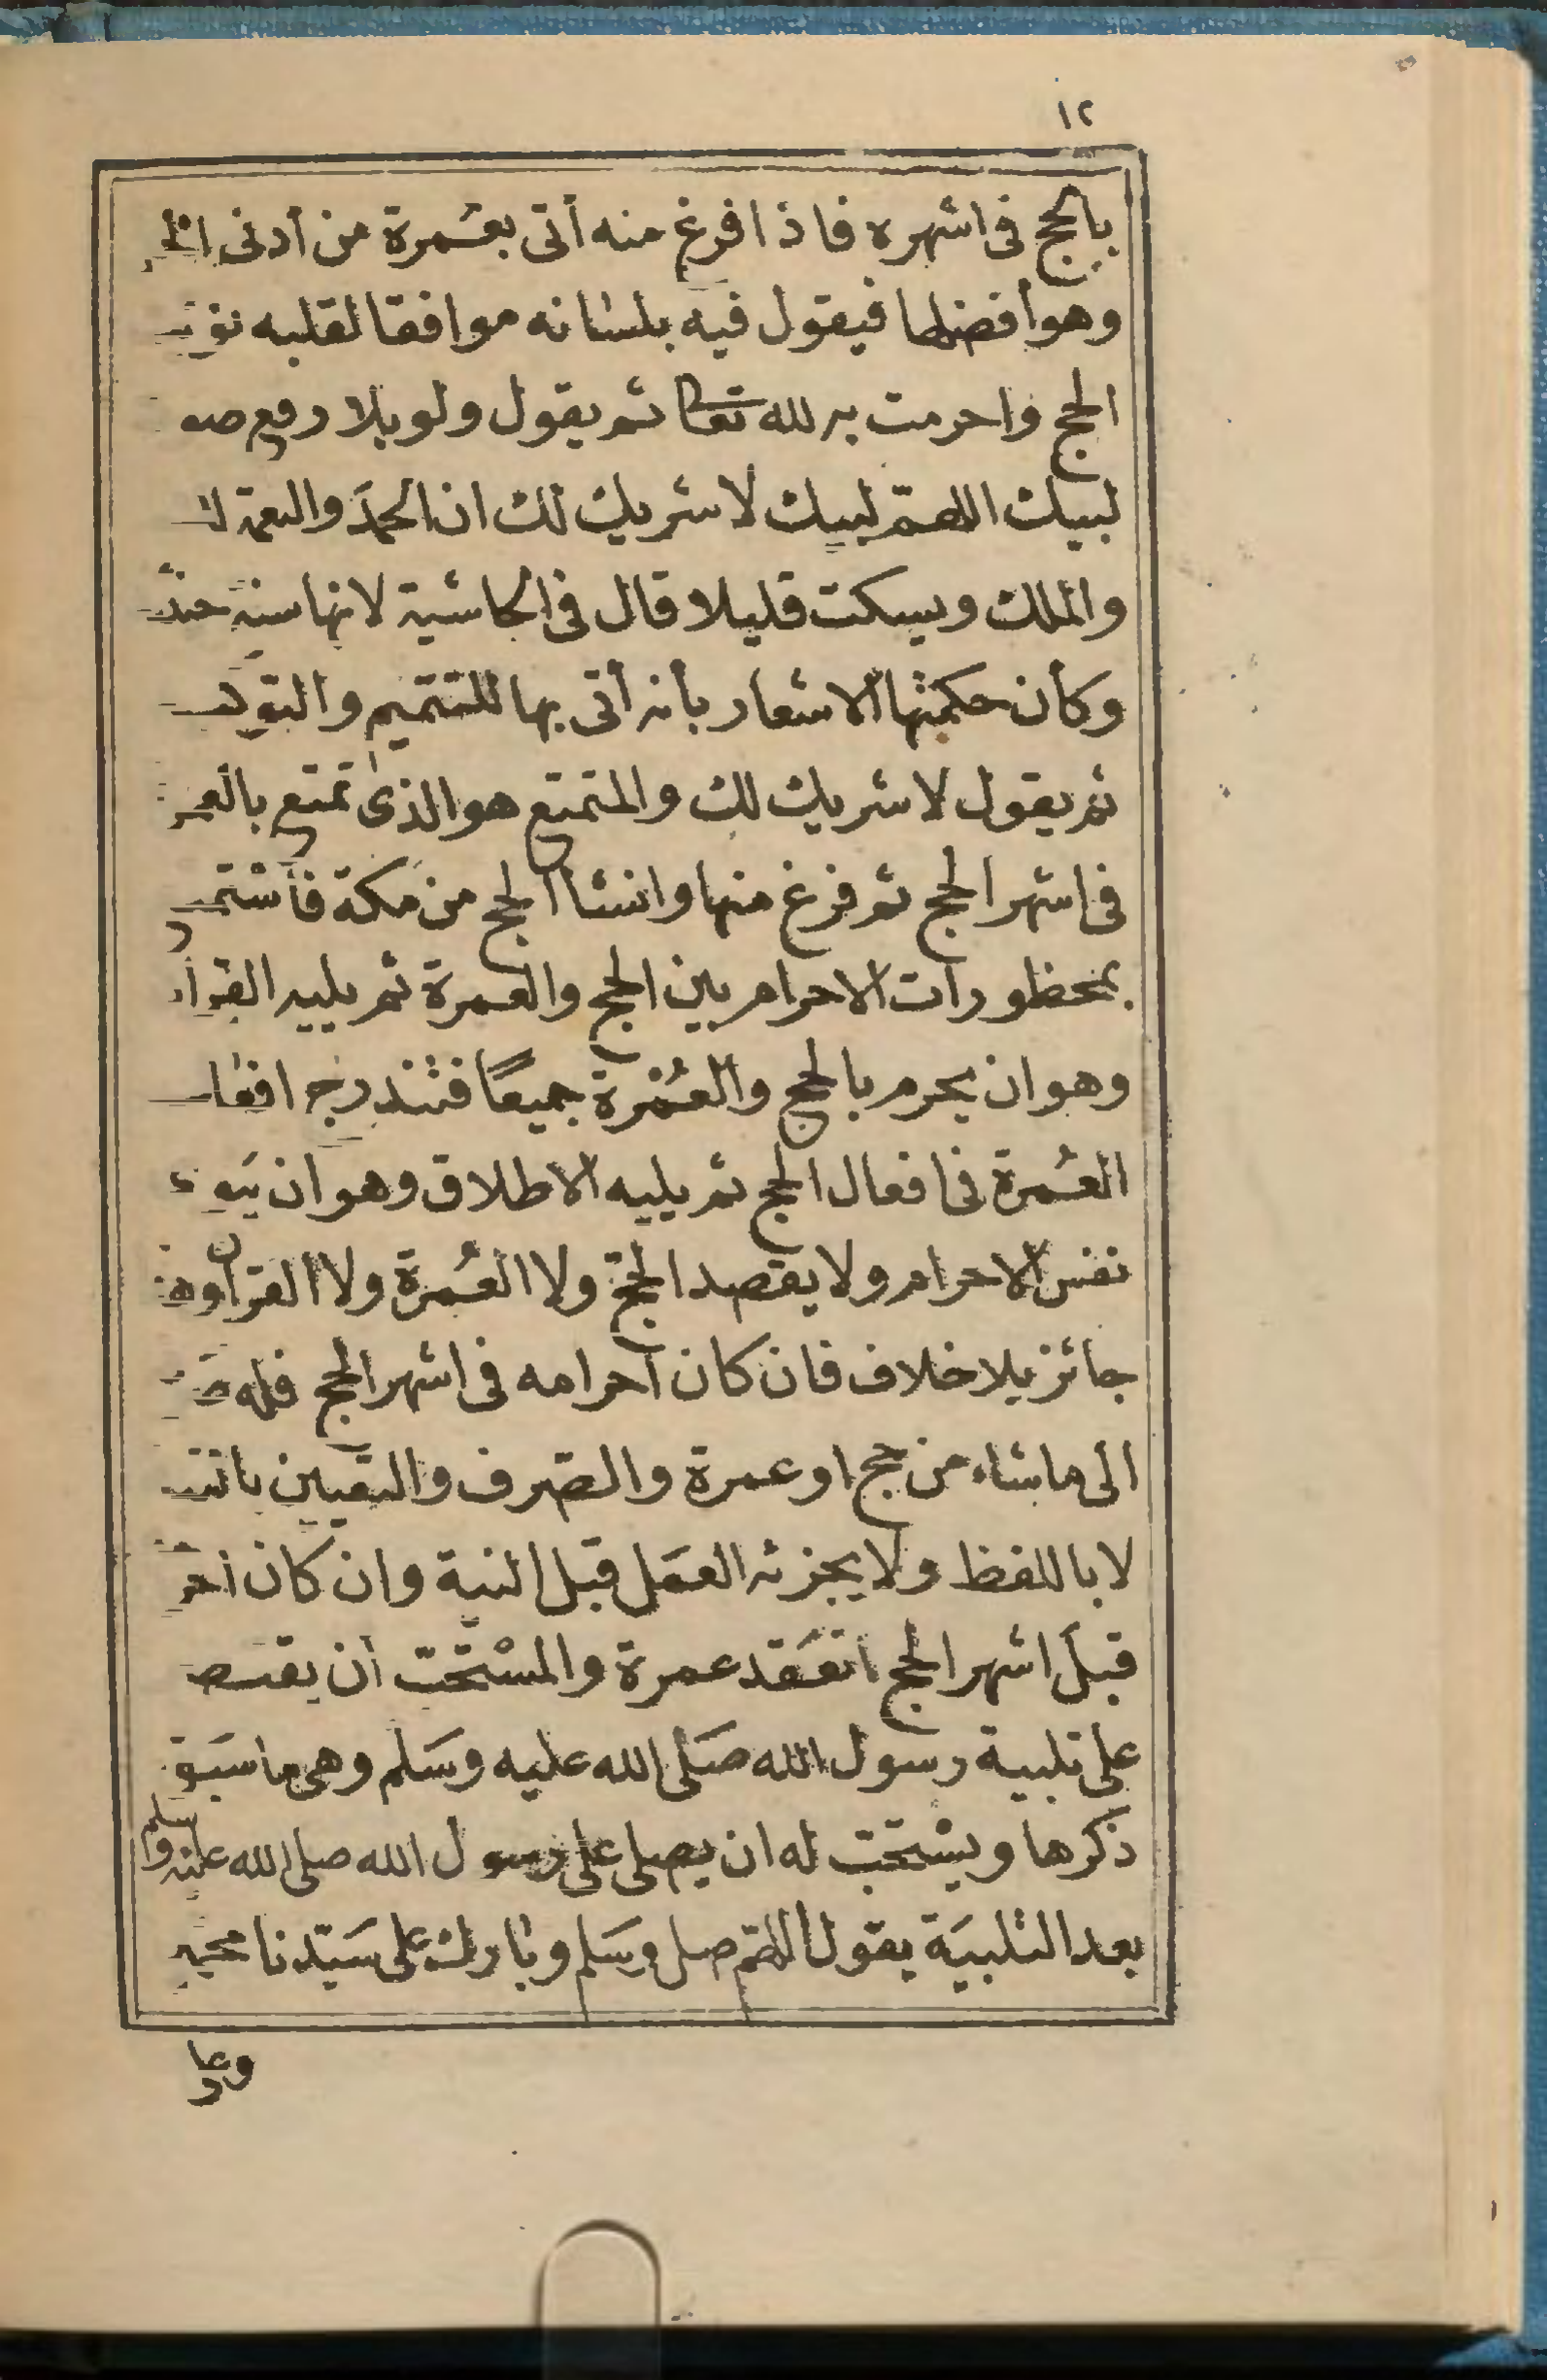 ١٢
بالحج فى اشهره فاذا فرغ منه أتى بعُمرة من أدنى الحل
وهو أفضلها فيقول فيه بلسانه موافقا لقلبه نويت
الحج واحرمت به لله تعالى ثم يقول ولو بلا رفع صو
لبيك اللهمّ لبيك لا شريك لك ان الحمدَ والنعمة لك
والملك ويسكت قليلا قال فى الحاشية لانها سنة
وكأن حكمتها الاشعار بأنه أتى بها للتتميم والتوكيد
ثم يقول لا شريك لك والمتمتع هو الذى تمتع بالعمرة
فى اشهر الحج ثم فرغ منها وانشأ الحج من مكة فأستمر
بمحظورات الاحرام بين الحج والعمرة ثم يليه القران
وهو ان يحرم بالحج والعُمْرة جميعًا فتندرج افعال
العُمرة فى افعال الحج ثم يليه الاطلاق وهو ان ينوى
نفس الاحرام ولا يقصد الحج ولا العُمرة ولا القران وهذا
جائز بلا خلاف فان كان احرامه فى اشهر الحج فله
الى ما شاء من حج او عمرة والصّرف والتعيين بالنية
لا باللفظ ولا يجزئه العمَل قبل النية وان كان احر
قبل اشهر الحج انعَقد عمرة والمسْتحَبّ أن يقتصر
على تلبية رسول الله صَلى الله عليه وسَلم وهى ما سَبق
ذكرها ويسْتحَبّ له ان يصلى على رسول الله صلى الله عليه وسلم
بعد التلبيَة يقول اللهمّ صل وسَلم وبارك على سَيّدنا محمد
وعلى